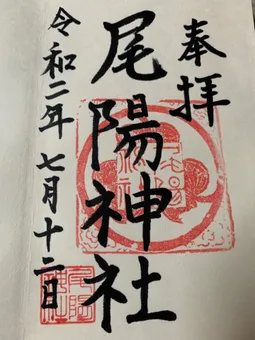 奉拝
尾陽神社
令和二年七月十二日